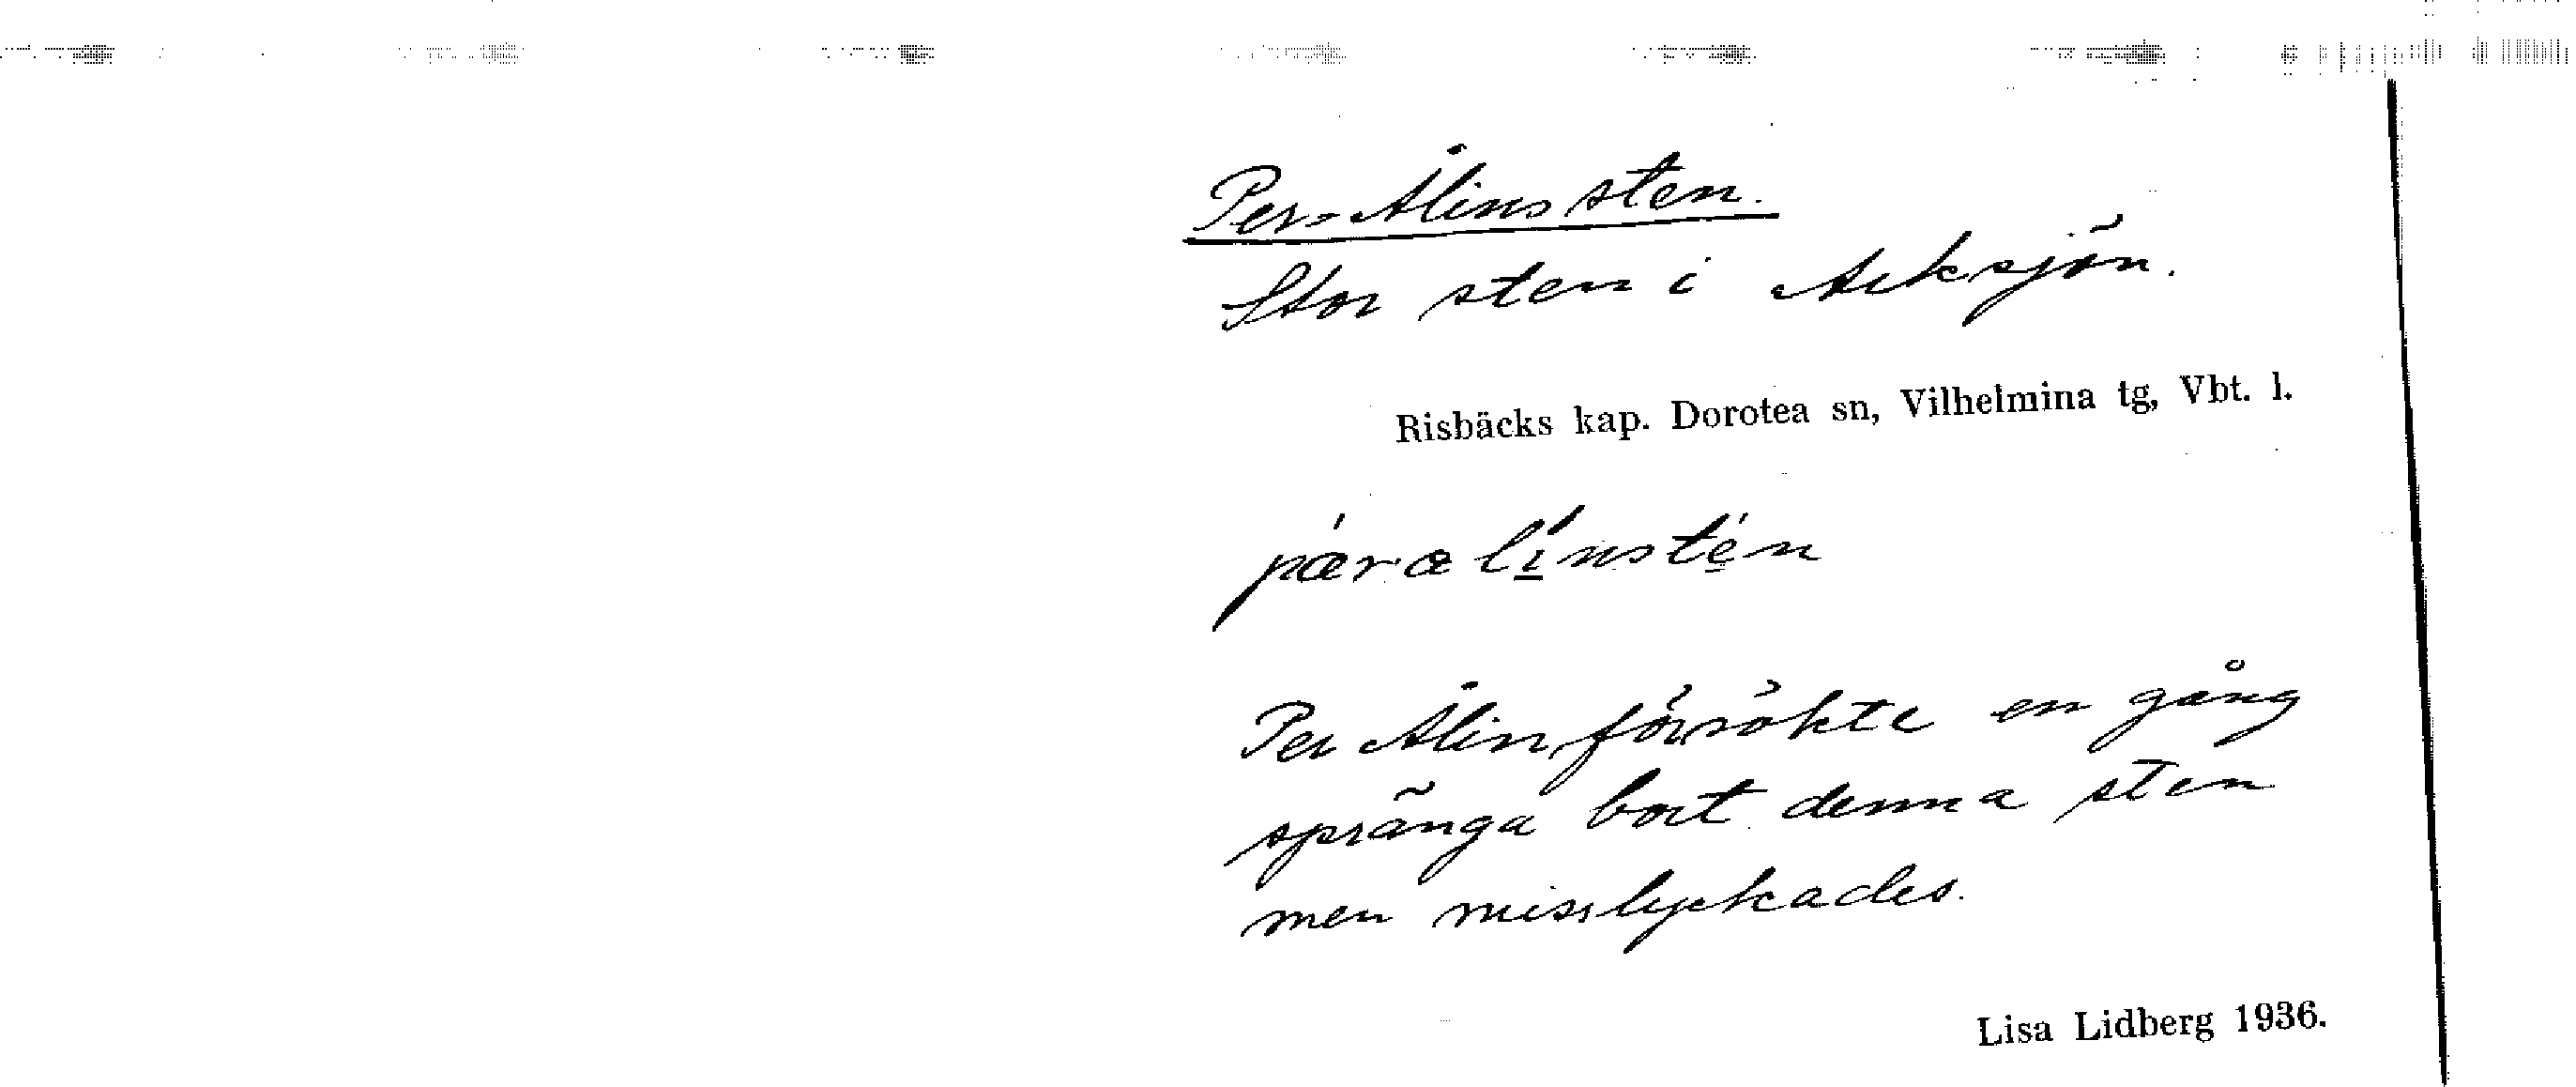 Per-Ålinssten.
Stor sten i Arksjön.
Risbäcks kap. Dorotea sn, Vilhelmina tg, Vbt. l.
pæ̀rælínstén
Per Ålin försökte en gång
spränga bort denna sten
men misslyckades.
Lisa Lidberg 1936.